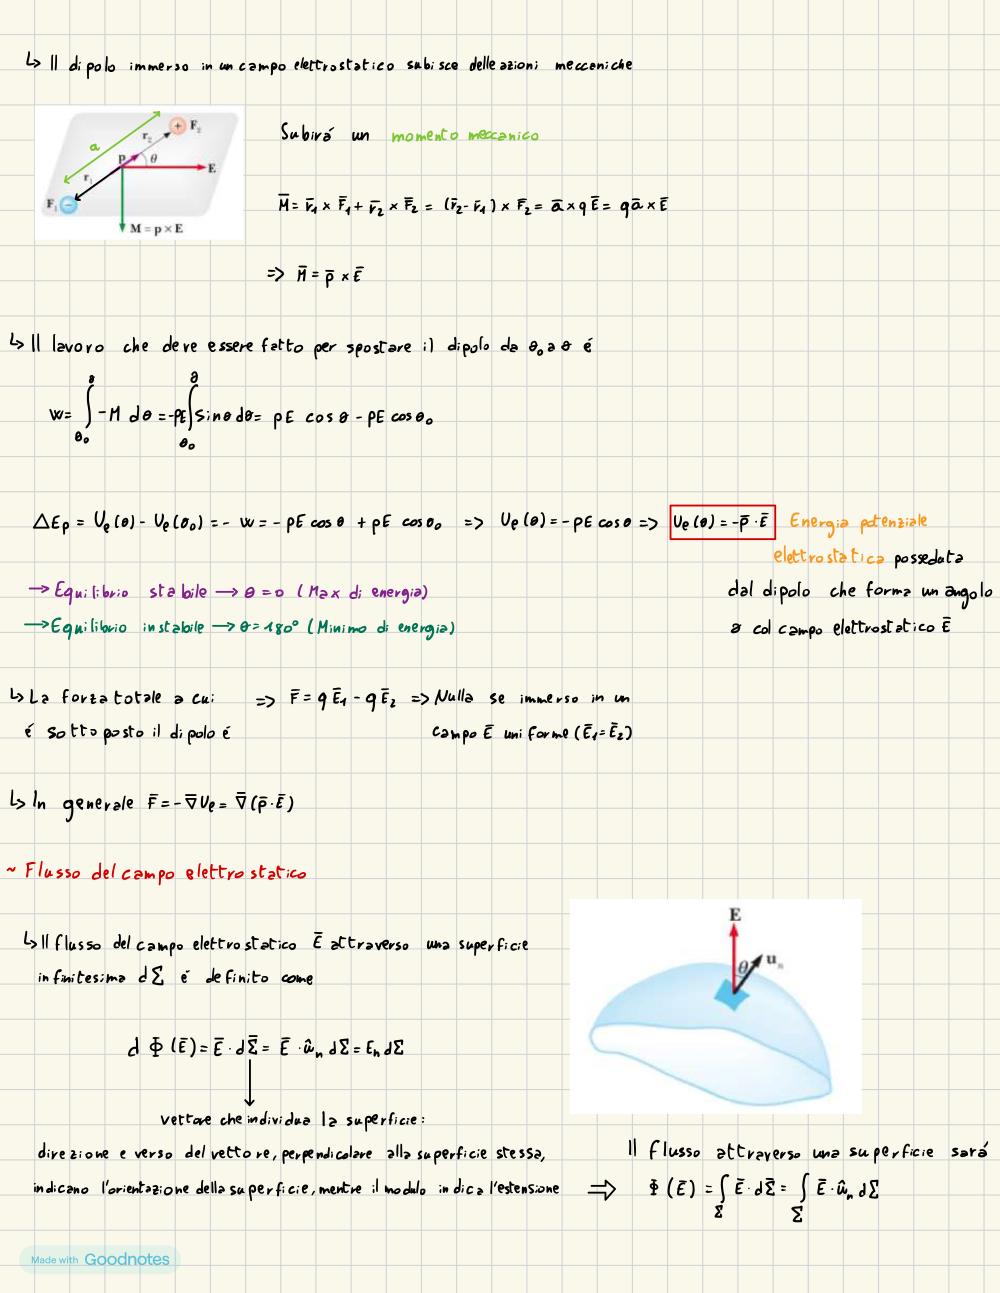 ↳ Il dipolo immerso in un campo elettrostatico subisce delle azioni meccaniche
a r₂ + F₂
p θ E
r₁
F₁ −
M = p × E
Subirá un momento meccanico
M̄ = r̄₁ × F̄₁ + r̄₂ × F̄₂ = (r̄₂ - r̄₁) × F̄₂ = ā × q Ē = qā × Ē
=> M̄ = p̄ × Ē
↳ Il lavoro che deve essere fatto per spostare il dipolo da θ₀ a θ é
W = ∫_θ₀^θ -M dθ = -pE ∫_θ₀^θ sinθ dθ = pE cosθ - pE cosθ₀
ΔEp = Ue(θ) - Ue(θ₀) = - W = - pE cosθ + pE cosθ₀ => Ue(θ) = - pE cosθ => Ue(θ) = -p̄ · Ē Energia potenziale
elettrostatica posseduta
→ Equilibrio stabile → θ = 0 (Max di energia) dal dipolo che forma un angolo
→ Equilibrio instabile → θ = 180° (Minimo di energia) θ col campo elettrostatico Ē
↳ La forza totale a cui => F̄ = q Ē₁ - q Ē₂ => Nulla se immerso in un
é sottoposto il dipolo é campo Ē uniforme (Ē₁ = Ē₂)
↳ In generale F̄ = - ∇̄ Ue = ∇̄ (p̄ · Ē)
~ Flusso del campo elettrostatico
E
θ uₙ
↳ Il flusso del campo elettrostatico Ē attraverso una superficie
infinitesima dΣ é definito come
d Φ (Ē) = Ē · dΣ̄ = Ē · ûₙ dΣ = Eₙ dΣ
vettore che individua la superficie:
direzione e verso del vettore, perpendicolare alla superficie stessa,
indicano l'orientazione della superficie, mentre il modulo indica l'estensione
=> Il flusso attraverso una superficie sará
Φ (Ē) = ∫_Σ Ē · dΣ̄ = ∫_Σ Ē · ûₙ dΣ
Made with Goodnotes